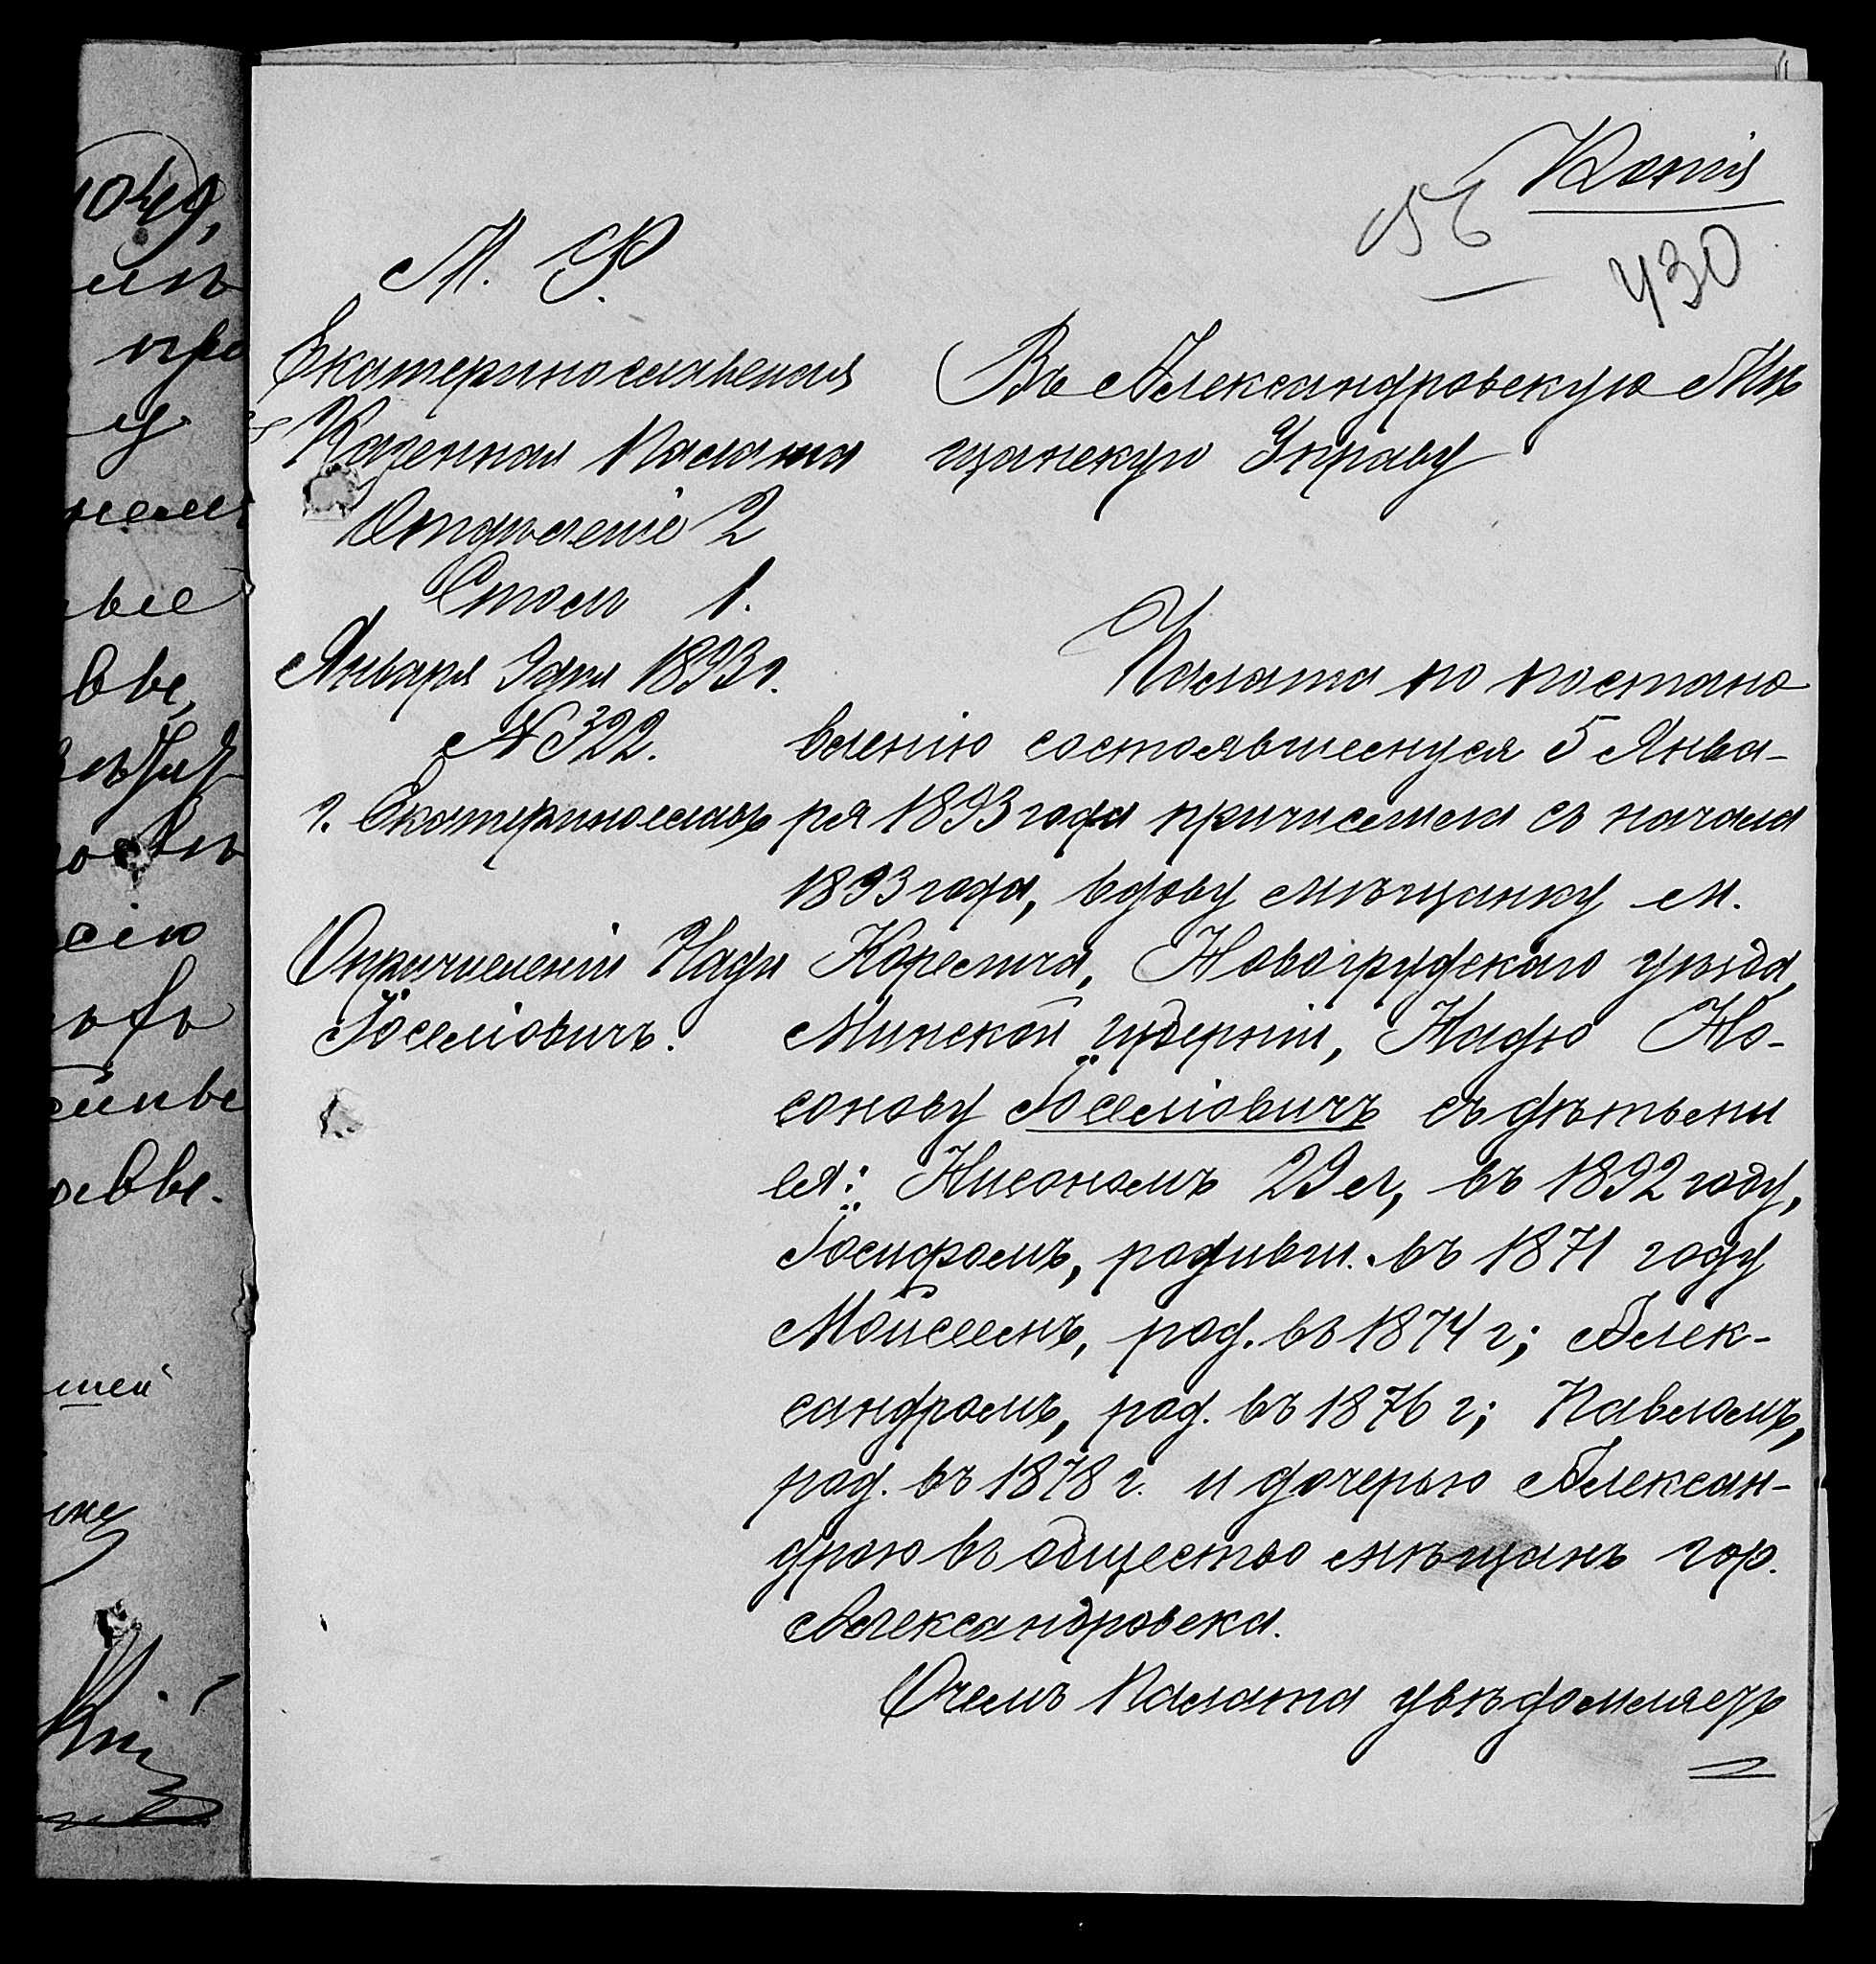 Копія
156
430
М. Ф.
Екатеринославская
Казенная Палата
Отдѣленіе 2
Столъ 1.
Января 9 дня 1893 г.
№ 322.
г. Екатеринославъ
О причисленіи Нади
Іоселіовичъ.
Въ Александровскую Мѣ
щанскую Управу
Палата по постано
вленію состоявшемуся 5 Янва-
ря 1893 года причислила съ начала
1893 года, вдову мѣщанку м.
Корелича, Новогрудскаго уѣзда,
Минской губерніи, Надю Но-
сонову Іоселіовичъ съ дѣтьми
ея: Нисономъ 29 л, въ 1892 году,
Іосифомъ, родивш. въ 1871 году
Мойсеемъ, род. въ 1874 г; Алек-
сандромъ, род. въ 1876 г; Павломъ,
род. въ 1878 г. и дочерью Алексан-
дрою въ общество мѣщанъ гор.
Александровска.
О чемъ Палата увѣдомляетъ